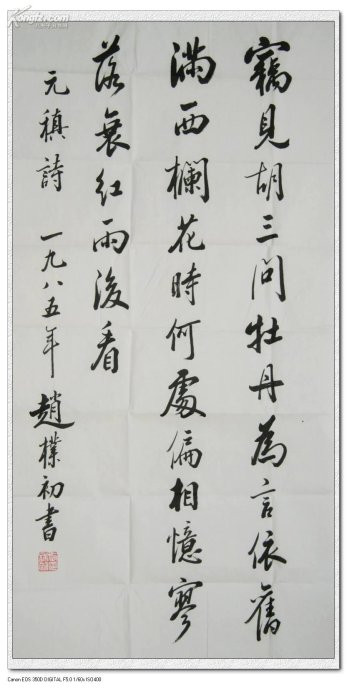 竊見胡三問牡丹為言依舊
滿西欄花時何處偏相憶寥
落衰紅雨後看
元稹詩 一九八五年 趙樸初書
Canon EOS 350D DIGITAL, F5.0 1/60s ISO400